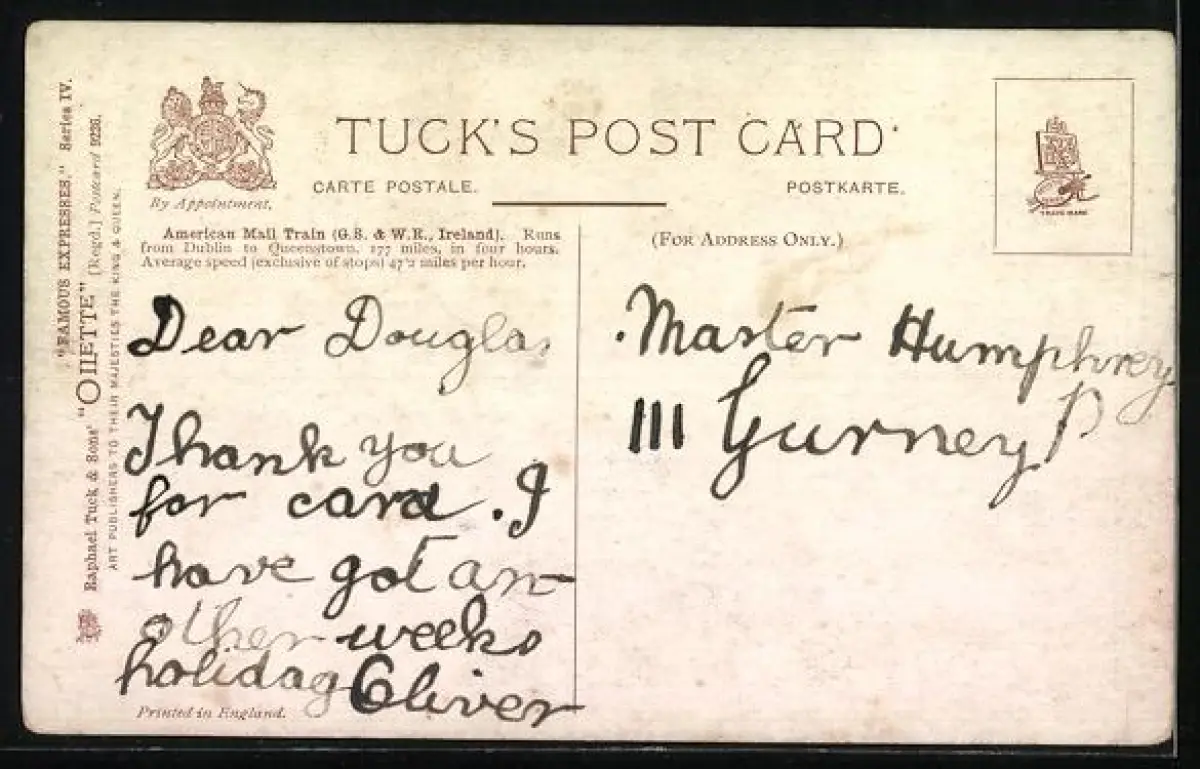 "FAMOUS EXPRESSES." Series IV.
Raphael Tuck & Sons' "OILETTE" [Regd.] Postcard 9226.
ART PUBLISHERS TO THEIR MAJESTIES THE KING & QUEEN.
By Appointment.
TUCK'S POST CARD
CARTE POSTALE.
POSTKARTE.
TRADE MARK
American Mail Train (G.S. & W.R., Ireland). Runs
from Dublin to Queenstown, 177 miles, in four hours.
Average speed (exclusive of stops) 47·2 miles per hour.
Dear Douglas
Thank you
for card. I
have got an-
other weeks
holiday Oliver
Printed in England.
(FOR ADDRESS ONLY.)
Master Humphrey
111 Gurney P